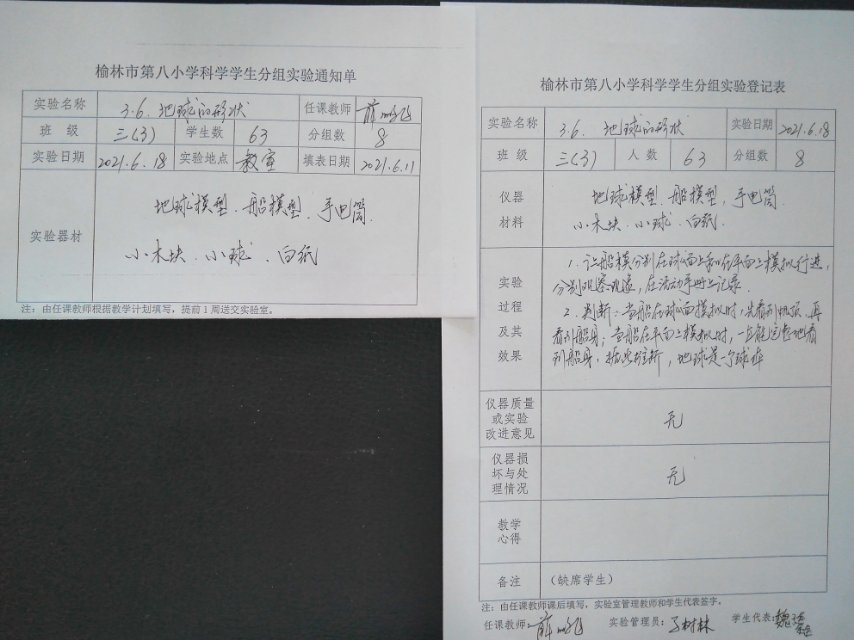 榆林市第八小学科学学生分组实验通知单
实验名称 3.6.地球的形状 任课教师 薛
班 级 三(3) 学生数 63 分组数 8
实验日期 2021.6.18 实验地点 教室 填表日期 2021.6.11
实验器材
地球模型.船模型.手电筒.
小木块.小球.白纸
注：由任课教师根据教学计划填写，提前1周送交实验室。
榆林市第八小学科学学生分组实验登记表
实验名称 3.6.地球的形状 实验日期 2021.6.18
班 级 三(3) 人 数 63 分组数 8
仪器
材料
地球模型.船模型,手电筒
小木块.小球.白纸.
实验
过程
及其
效果
1.让船模分别在球面上和在平面上模拟行进,
分别观察现象,在活动手册上记录.
2.判断:当船在球面模拟时,先看到桅顶,再
看到船身;当船在平面上模拟时,一直能完整地看
到船身.推断,地球是一个球体
仪器质量
或实验
改进意见
无
仪器损
坏与处
理情况
无
教学
心得
备注 （缺席学生）
注：由任课教师课后填写，实验室管理教师和学生代表签字。
任课教师: 薛 实验管理员: 树林 学生代表: 魏